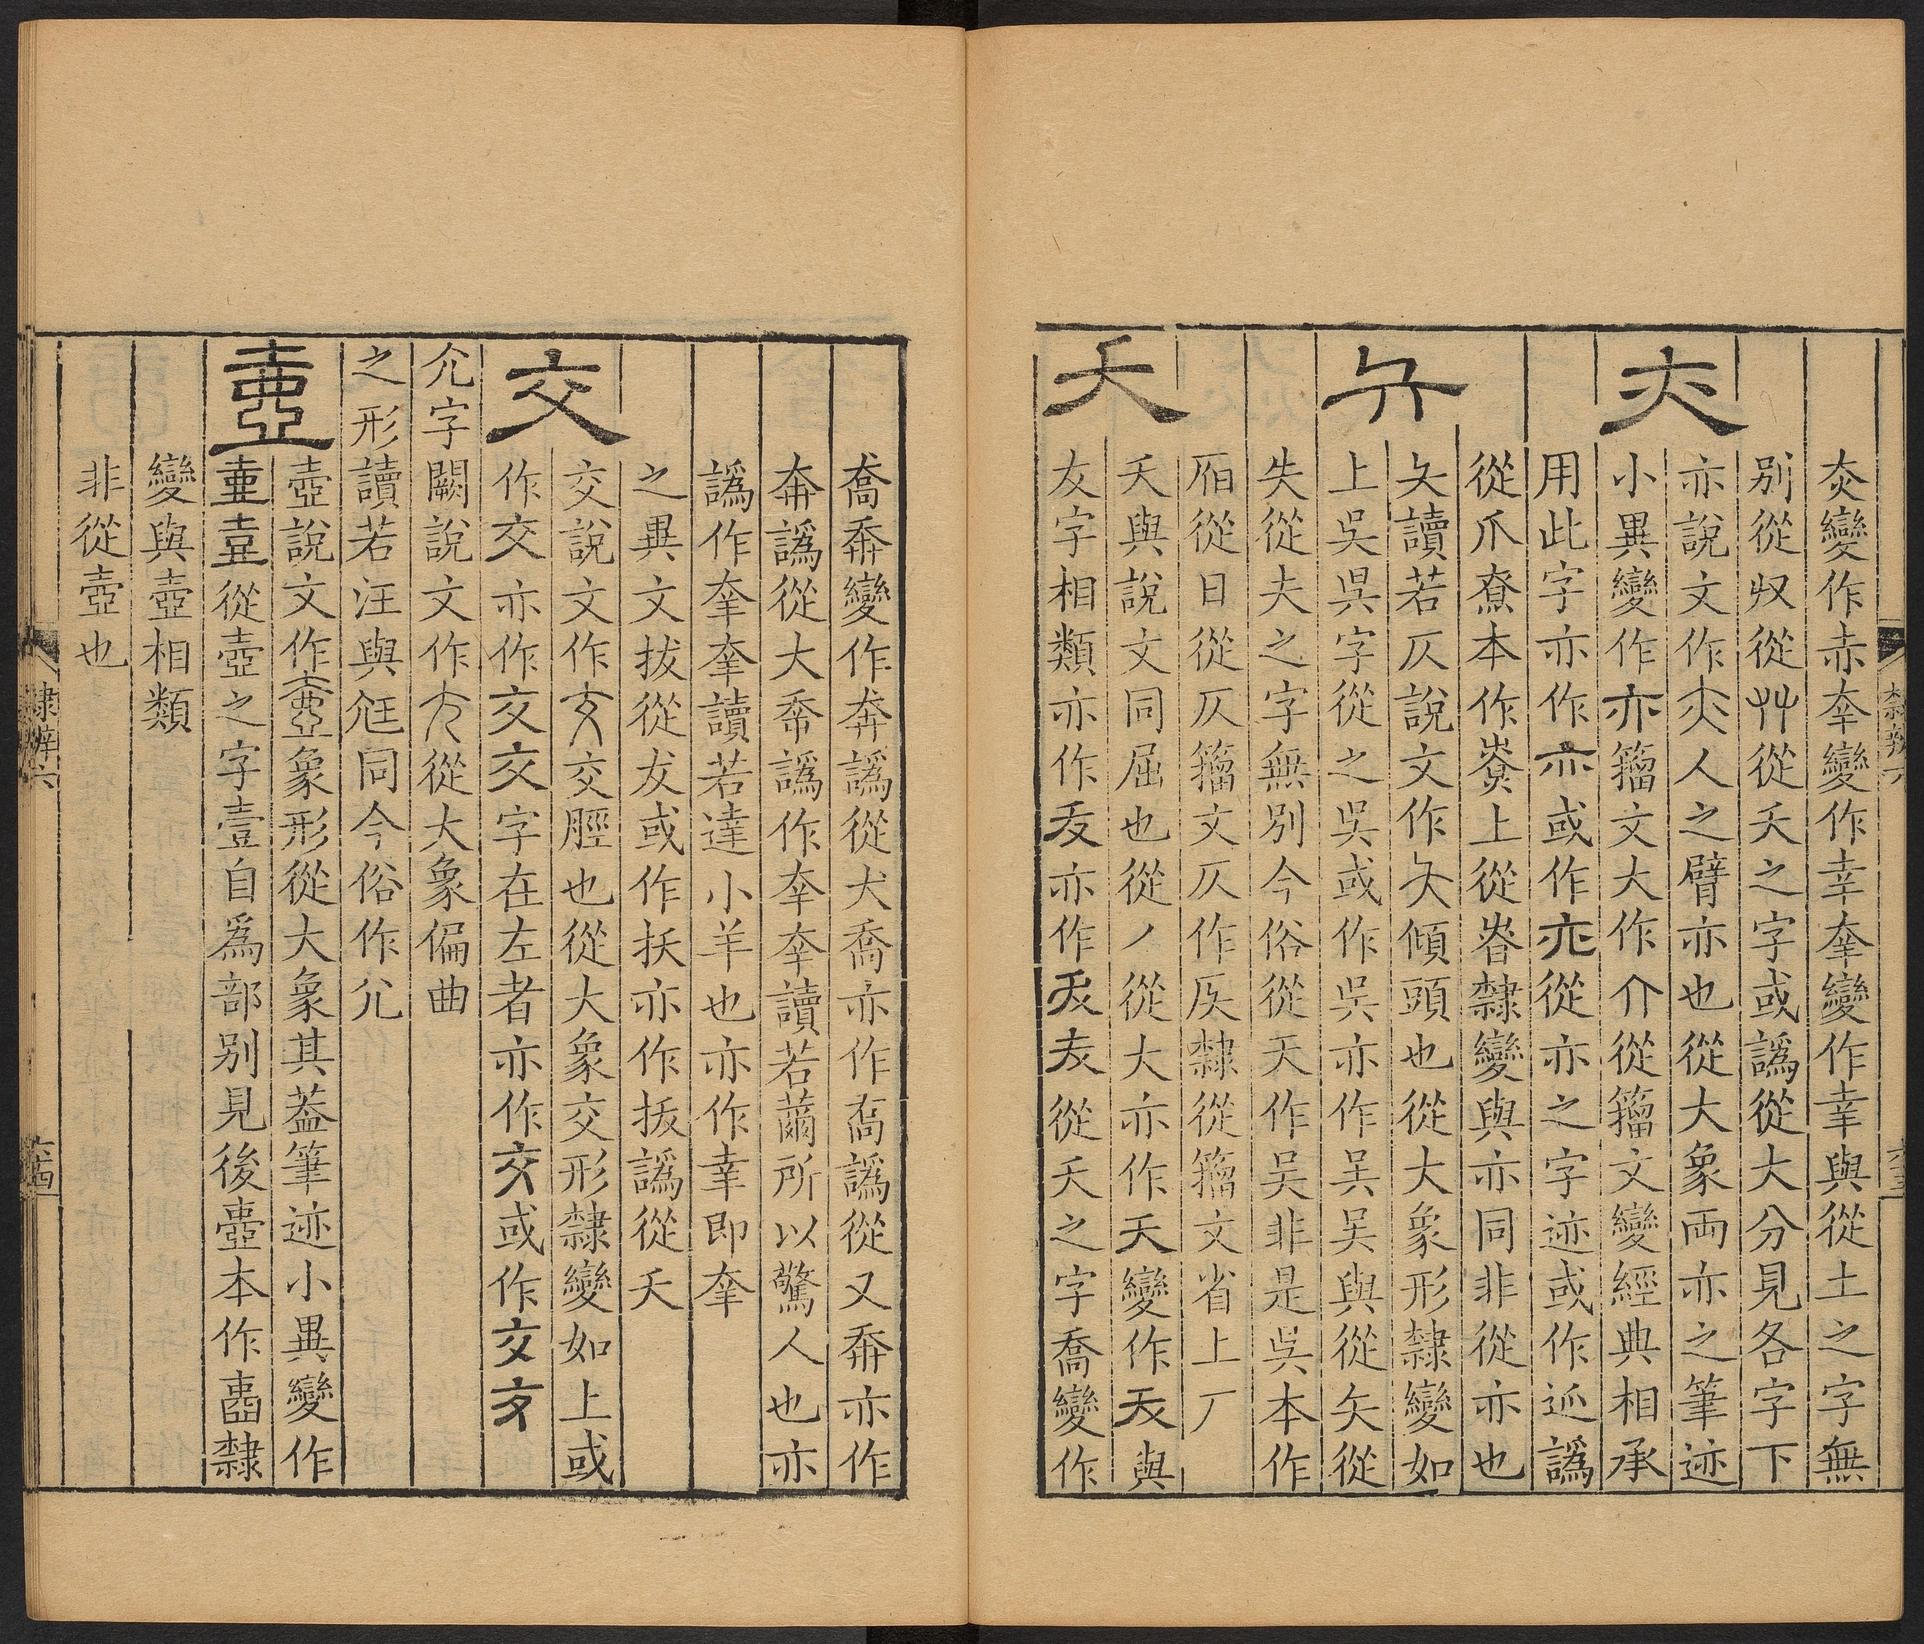 灻變作赤㚔變作幸㚔變作幸與從土之字無
別從収從艸從夭之字或譌從大分見各字下
亦說文作夾人之臂亦也從大象両亦之筆迹
小異變作亦籀文大作介從籀文變經典相承
用此字亦作亦或作亦從亦之字迹或作迊譌
從爪尞本作尞上從昚隸變與亦同非從亦也
夨讀若仄說文作夨傾頭也從大象形隸變如
上吳吳字從之吳或作吳亦作吴吴與從矢從
失從夫之字無別今俗從天作吴非是吳本作
厢從日從仄籀文仄作𠨮隸從籀文省上厂
夭與說文同屈也從丿從大亦作天變作夭與
友字相類亦作犮亦作犮犮從夭之字喬變作
喬奔變作奔譌從犬喬亦作喬譌從又奔亦作
奔譌從大奔譌作㚔㚔讀若薾所以驚人也亦
譌作㚔㚔讀若達小羊也亦作幸即㚔
之異文拔從犮或作扷亦作拔譌從夭
交說文作交交脛也從大象交形隸變如上或
作交亦作交交字在左者亦作交或作交交
尣字闕說文作尣從大象偏曲
之形讀若汪與尪同今俗作尣
壺說文作壺象形從大象其葢筆迹小異變作
壺壺從壺之字壹自爲部別見後壼本作壼隸
變與壺相類
非從壺也
隸辨六